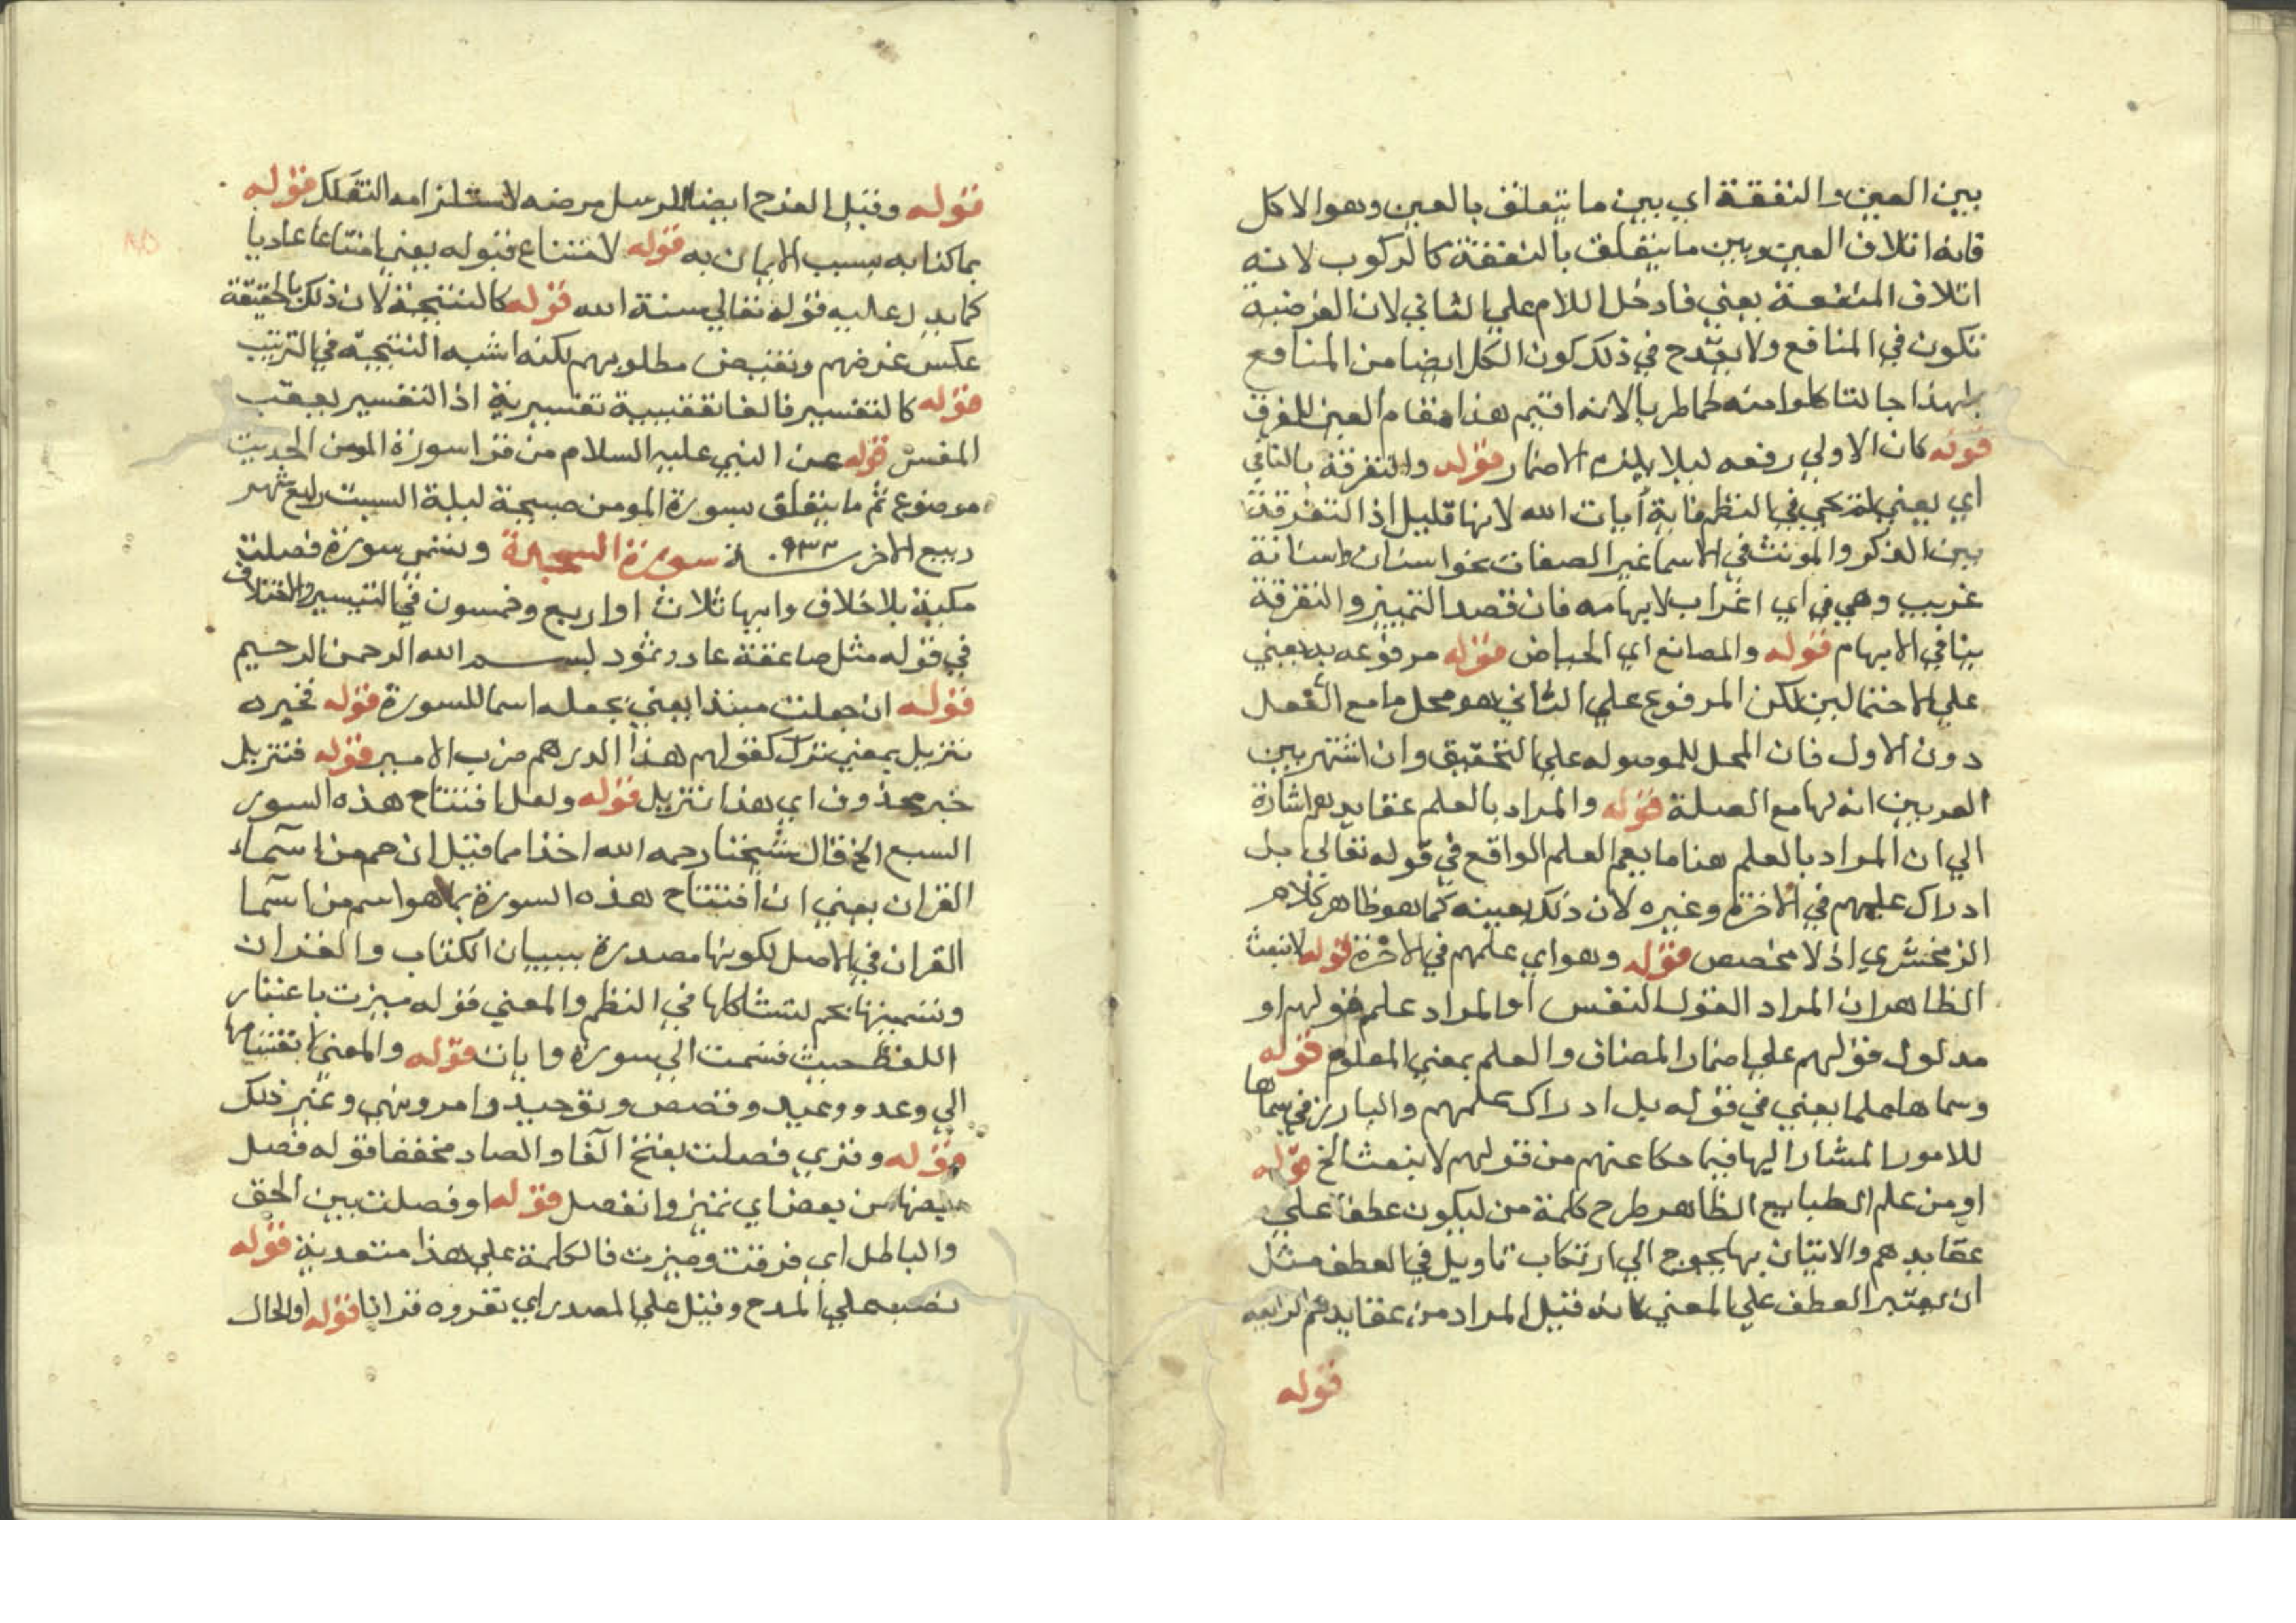 بين العين والنفقة اي بين ما يتعلق بالعين وهو الاكل
فانه اتلاف العين وبين ما يتعلق بالنفقة كالركوب لانه
اتلاف المنفعة يعني فادخل اللام علي الثاني لان الغرضية
تكون في المنافع ولا يقدح في ذلك كون الكل ايضا من المنافع
ولهذا جا لتاكلوا منه لحما طريا لانه اقيم هذا مقام العين للفرق
قوله كان الاولي رفعه ليلا يلزم الاضمار قوله والتفرقة بالتا في
اي يعني لم تجي في النظم فاية آيات الله لانها قليل اذ التفرقة
بين المذكر والمونث في الاسما غير الصفات نحو انسان وانسانة
غريب وهي في اي اغراب لابهامه فان قصد التمييز والتفرقة
ينافي الابهام قوله والمصانع اي الحياض قوله مرفوعه به يعني
علي الاحتمالين لكن المرفوع علي الثاني هو محل ما مع الفعل
دون الاول فان المحل للموصوله علي التحقيق وان اشتهر بين
المعربين انه لها مع الصلة قوله والمراد بالعلم عقايدهم اشارة
الي ان المراد بالعلم هنا ما يعم العلم الواقع في قوله تعالي بل
ادراك علمهم في الاخرة وغيره لان ذلك بعينه كما هو ظاهر كلام
الزمخشري اذ لا مخصص قوله وهو اي علمهم في الاخرة قوله لا نبعث
الظاهر ان المراد القول النفس او المراد علم قولهم او
مدلول قولهم علي اضمار المضاف والعلم بمعني المعلوم قوله
وسماها علما يعني في قوله بل ادراك علمهم والبارز في سماها
للامور المشار اليها فيما حكا عنهم من قولهم لا نبعث الخ قوله
او من علم الطبايع الظاهر طرح كلمة من ليكون عطفا علي
عقايدهم والاتيان بها يحوج الي ارتكاب تاويل في العطف مثل
ان يعتبر العطف علي المعني كانه قيل المراد من عقايدهم الزايغه
قوله
قوله وقيل الفرح ايضا للرسل مرضه لاستلزامه التفكك قوله
بما كذا به بسبب الايمان به قوله لامتناع قبوله يعني امتناعا عاديا
كما يدل عليه قوله تعالي سنة الله قوله كالنتيجة لان ذلك بالحقيقة
عكس غرضهم ونقيض مطلوبهم لكنه اشبه النتيجة في الترتيب
قوله كالتفسير فالفا تعقيبية تفسيرية اذ التفسير يعقب
المفسر قوله عن النبي عليه السلام من قرا سورة المومن الحديث
موضوع ثم ما يتعلق بسورة المومن صبيحة ليلة السبت رابع شهر
ربيع الاخر سنة ٩٣٣ سورة السجدة وتسمي سورة فصلت
مكية بلا خلاف وايها ثلاث او اربع وخمسون في التيسير والاختلاف
في قوله مثل صاعقة عاد وثمود بسم الله الرحمن الرحيم
قوله ان جعلت مبتدا يعني بجعله اسما للسورة قوله فخبره
تنزيل بمعني منزل كقولهم هذا الدرهم ضرب الامير قوله فتنزيل
خبر محذوف اي هذا تنزيل قوله ولعل افتتاح هذه السور
السبع الخ قال شيخنا رحمه الله اخذا مما قيل ان حم من اسماء
القران يعني ان افتتاح هذه السورة بما هو اسم من اسما
القران في الاصل لكونها مصدرة ببيان الكتاب والقران
وتسميتها بحم لتشاكلها في النظم والمعني قوله ميزت باعتبار
اللفظ حيث قسمت الي سورة وايات قوله والمعني لانقسامها
الي وعد ووعيد وقصص وتوحيد وامر ونهي وغير ذلك
قوله وقري فصلت بفتح الفا والصاد مخففا قوله فصل
بعضها من بعض اي تميز وانفصل قوله او فصلت بين الحق
والباطل اي فرقت وميزت فالكلمة علي هذا متعدية قوله
نصبه علي المدح وقيل علي المصدر اي تقروه قرانا قوله او الحال